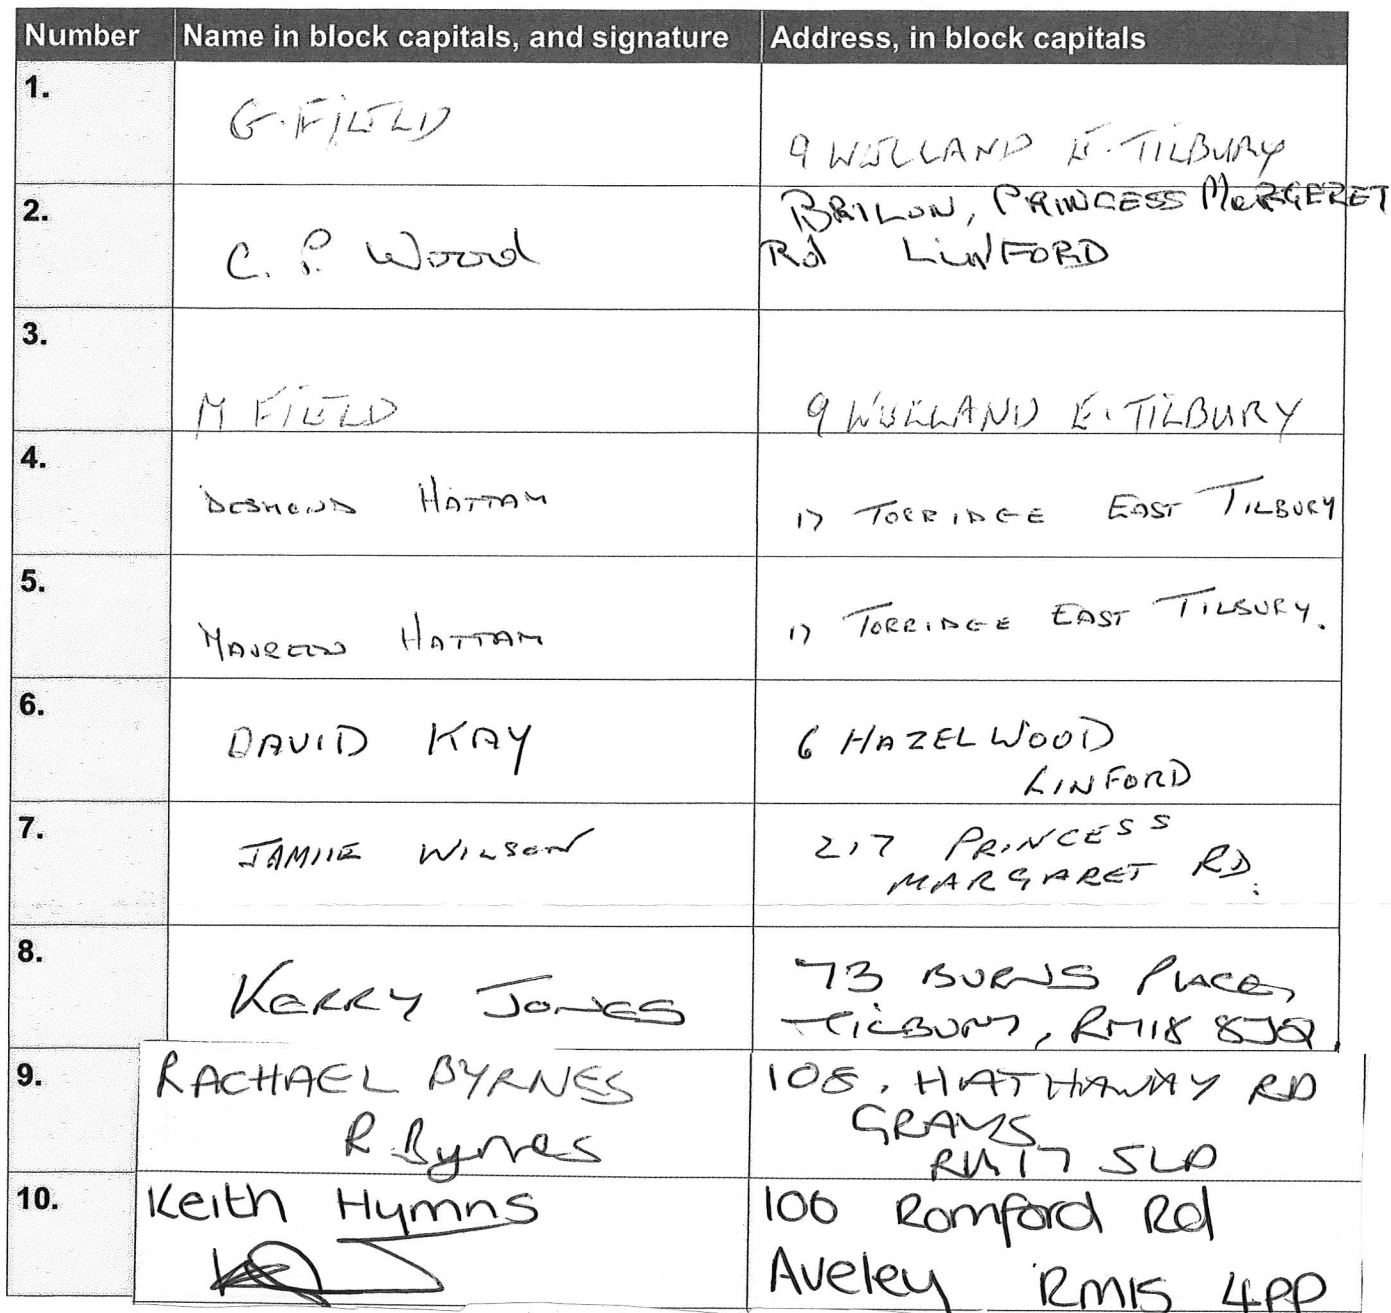 Number Name in block capitals, and signature Address, in block capitals
1.
G. FIELD
9 WELLAND E. TILBURY
2.
C. P. Wood
BRILON, PRINCESS MARGERET
Rd LINFORD
3.
M FIELD
9 WELLAND E. TILBURY
4.
DESMOND HATTAM
17 TORRIDGE EAST TILBURY
5.
MAUREEN HATTAM
17 TORRIDGE EAST TILBURY.
6.
DAVID KAY
6 HAZELWOOD
LINFORD
7.
JAMIIE WILSON
217 PRINCESS
MARGARET RD.
8.
KERRY JONES
73 BURNS PLACE,
TILBURY, RM18 8JQ
9.
RACHAEL BYRNES
R. Byrnes
108, HATHAWAY RD
GRAYS
RM17 5LD
10.
Keith Hymns
100 Romford Rd
Aveley RM15 4PP